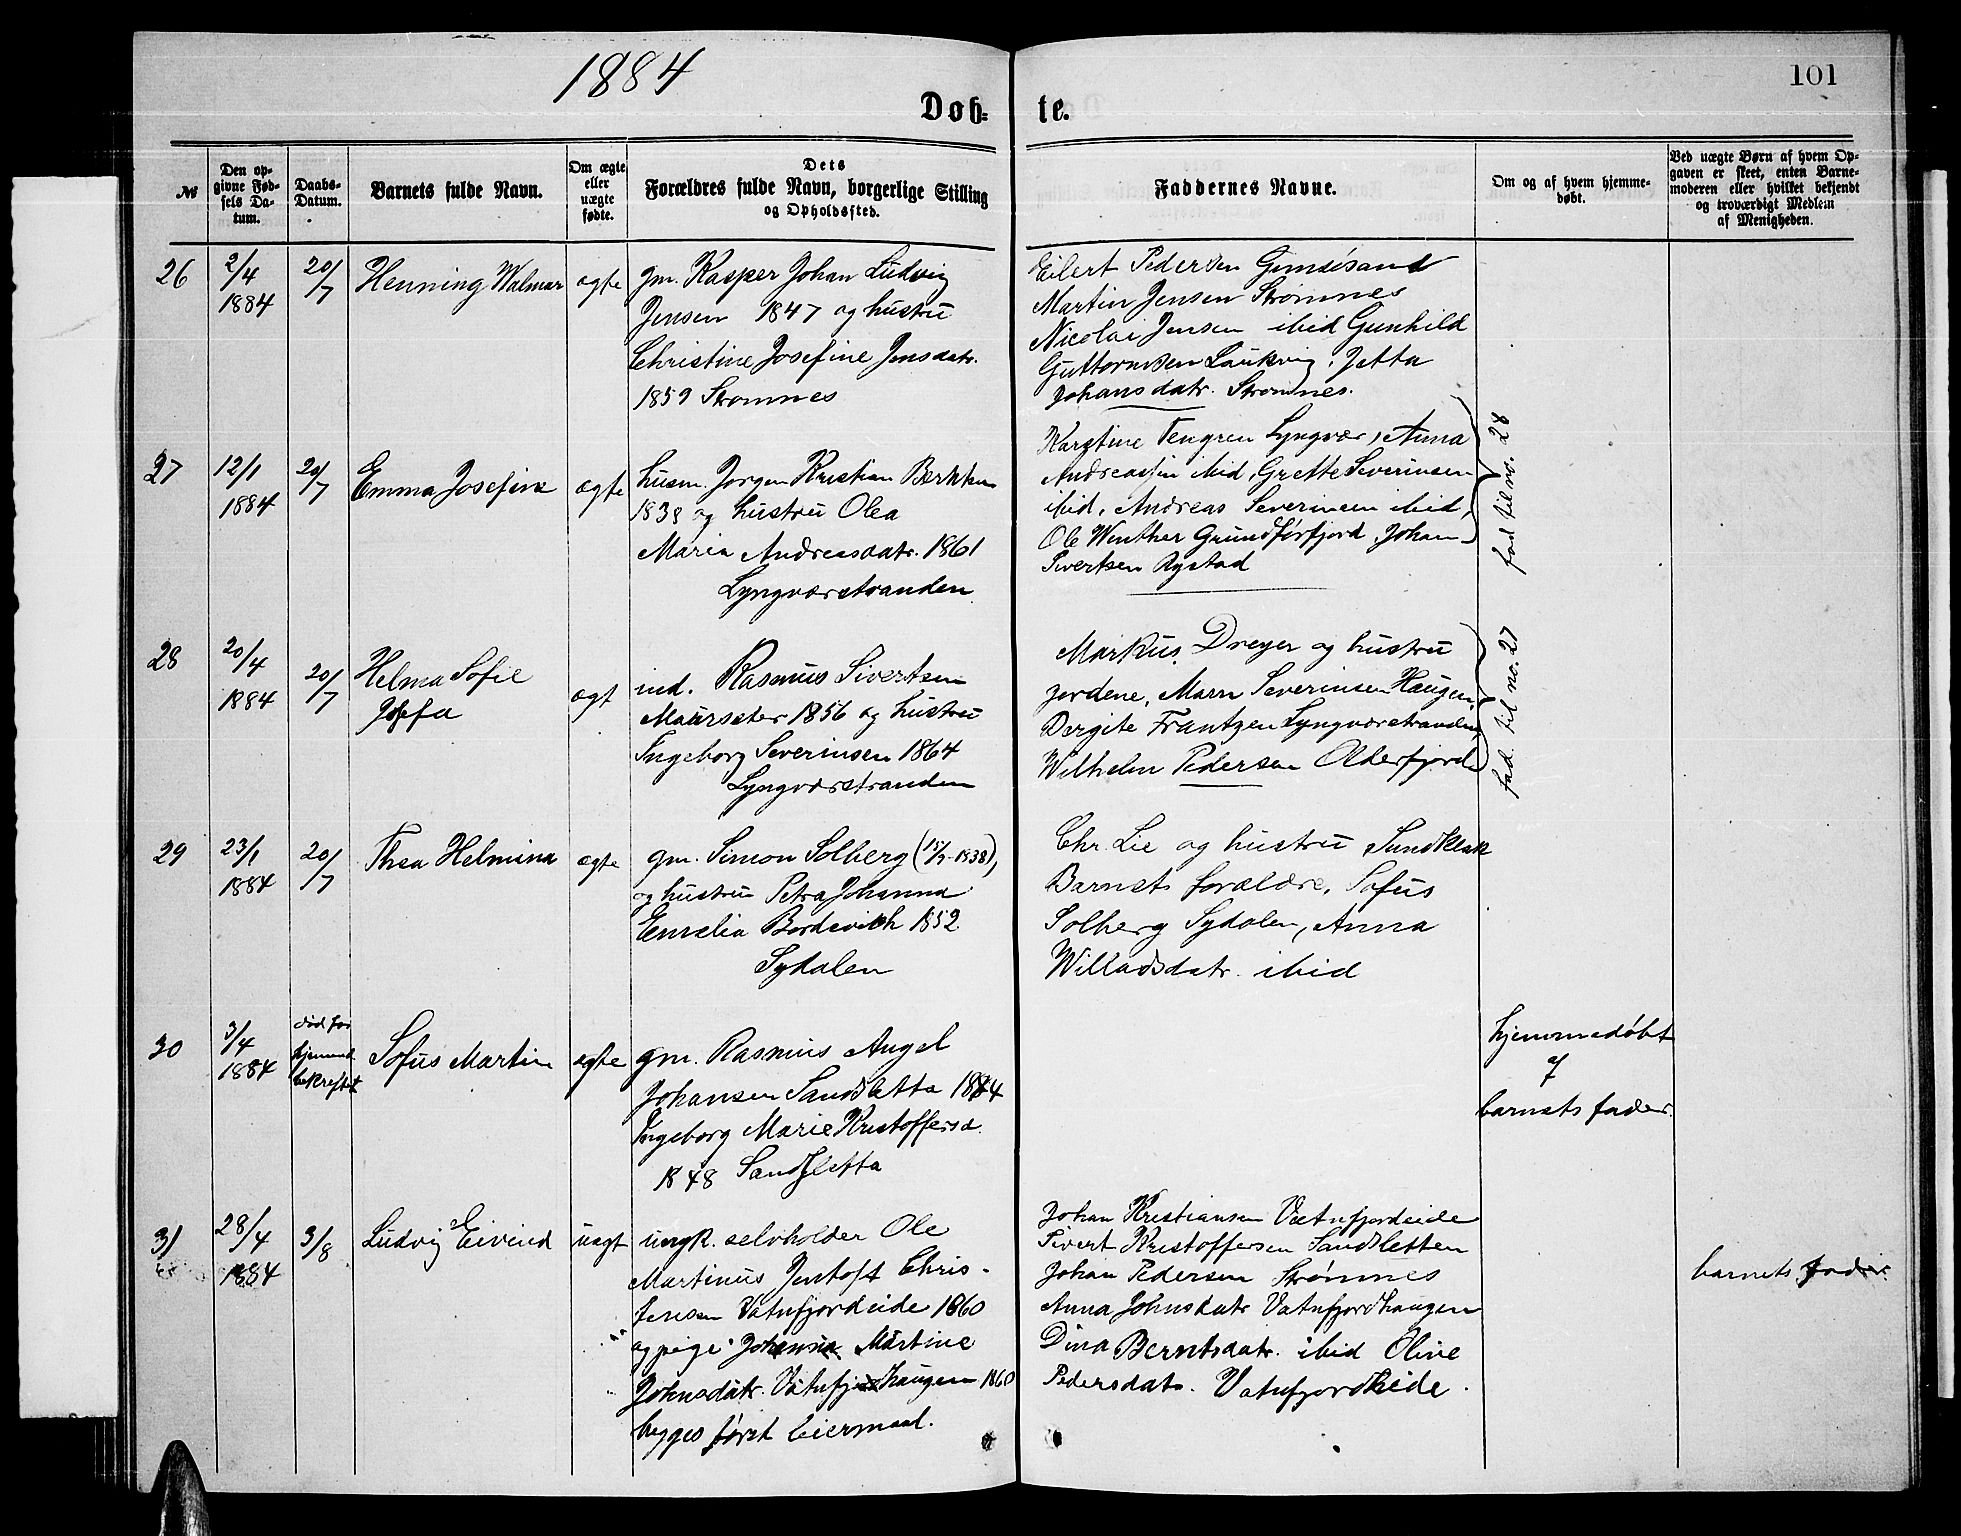 1884
101
Døb-
te.
№
Den op-
givne Fød-
sels Da-
tum.
Daabs-
Datum.
Barnets fulde Navn.
Om ægte
eller
uægte
fødte.
Dets
Forældres fulde Navn, borgerlige Stilling
og Opholdssted.
Faddernes Navne.
Om og af hvem hjemme-
døbt.
Ved uægte Børn af hvem Op-
gaven er skeet, enten Barne-
moderen eller hvilket bekjendt
og troværdigt Medlem
af Menigheden.
26
2/4
1884
20/7
Henning Walmar
ægte
gm. Kasper Johan Ludvig
Jensen 1847 og hustru
Christine Josefine Jensdatr.
1859 Strømnes
Eilert Pedersen Gimsösand
Martin Jensen Strømnes
Nicolai Jensen ibid Gunhild
Guttormsen Laukvig, Jetta
Johansdatr. Strømnes.
27
12/1
1884
20/7
Emma Josefine
ægte
husm. Jørgen Kristian
1838 og hustru Olea
Maria Andreasdatr. 1861
Lyngværstranden
Tengren Lyngvær, Anna
ibid, Grette Severinsen
ibid, Andreas Severinsen ibid,
Ole Winther Grundførfjord, Johan
Sivertsen Rystad
fad til no. 28
28
20/4
1884
20/7
Helma Sofie
Josefa
ægt
ind. Rasmus Sivertsen
Maursater 1856 og hustru
Ingeborg Severinsen 1864
Lyngværstranden
Markus Dreyer og hustru
Jordene, Marn Severinsen Haugen,
Frantzen Lyngværstranden,
Wilhelm Pedersen Olderfjord
fad. til no. 27
29
23/1
1884
20/7
Thea Helmina
ægte
gm. Simon Solberg (15/7-1838),
og hustru Petra Johanna
Emelia Bordevich 1852
Sydalen
Chr. Lie og hustru Sundklak
Barnets forældre, Sofus
Solberg Sydalen, Anna
Willadsdatr. ibid
30
3/4
1884
død før
bekreftet
Sofus Martin
ægte
gm. Rasmus Angel
Johansen Sandsletta 1844
Ingeborg Marie Kristoffersd.
1848 Sandsletta
hjemmedøbt
af
barnets fader.
31
28/4
1884
3/8
Ludvig Eivind
uægt
ungk. selvholder Ole
Martinus Jentoft Chris-
fersen Vatnfjordeide 1860
og pige Johanna Martine
Johnsdatr. Vatnfjordhaugen 1860
begges først leiermaal.
Johan Kristiansen Vatnfjordeide
Sivert Kristoffersen Sandsletten
Johan Pedersen Strømnes
Anna Johnsdatr Vatnfjordhaugen
Dina Berntsdatr. ibid Oline
Pedersdatr. Vatnfjordheide.
barnets fader.